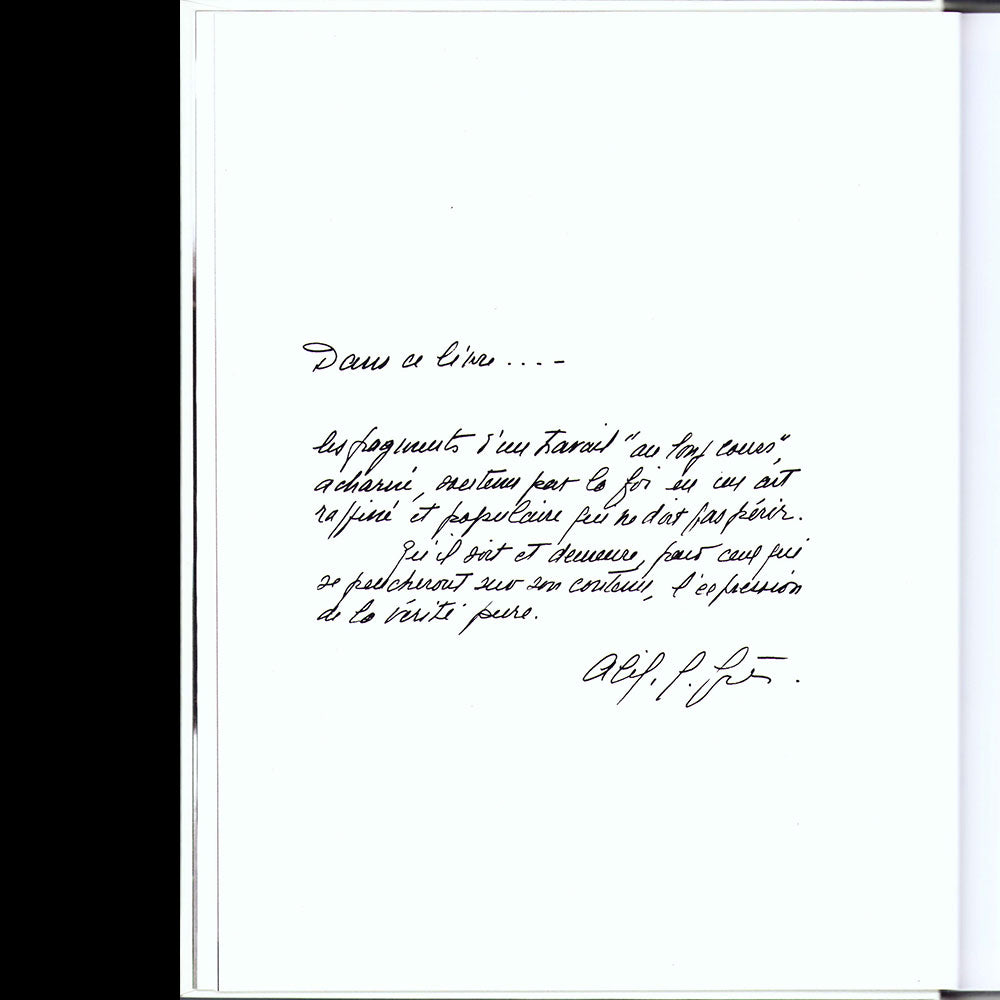 Dans ce livre ....-
les fragments d'un travail "au long cours",
acharné, soutenu par la foi en un art
raffiné et populaire qui ne doit pas périr.
Qu'il soit et demeure, pour ceux qui
se pencheront sur son contenu, l'expression
de la vérité pure.